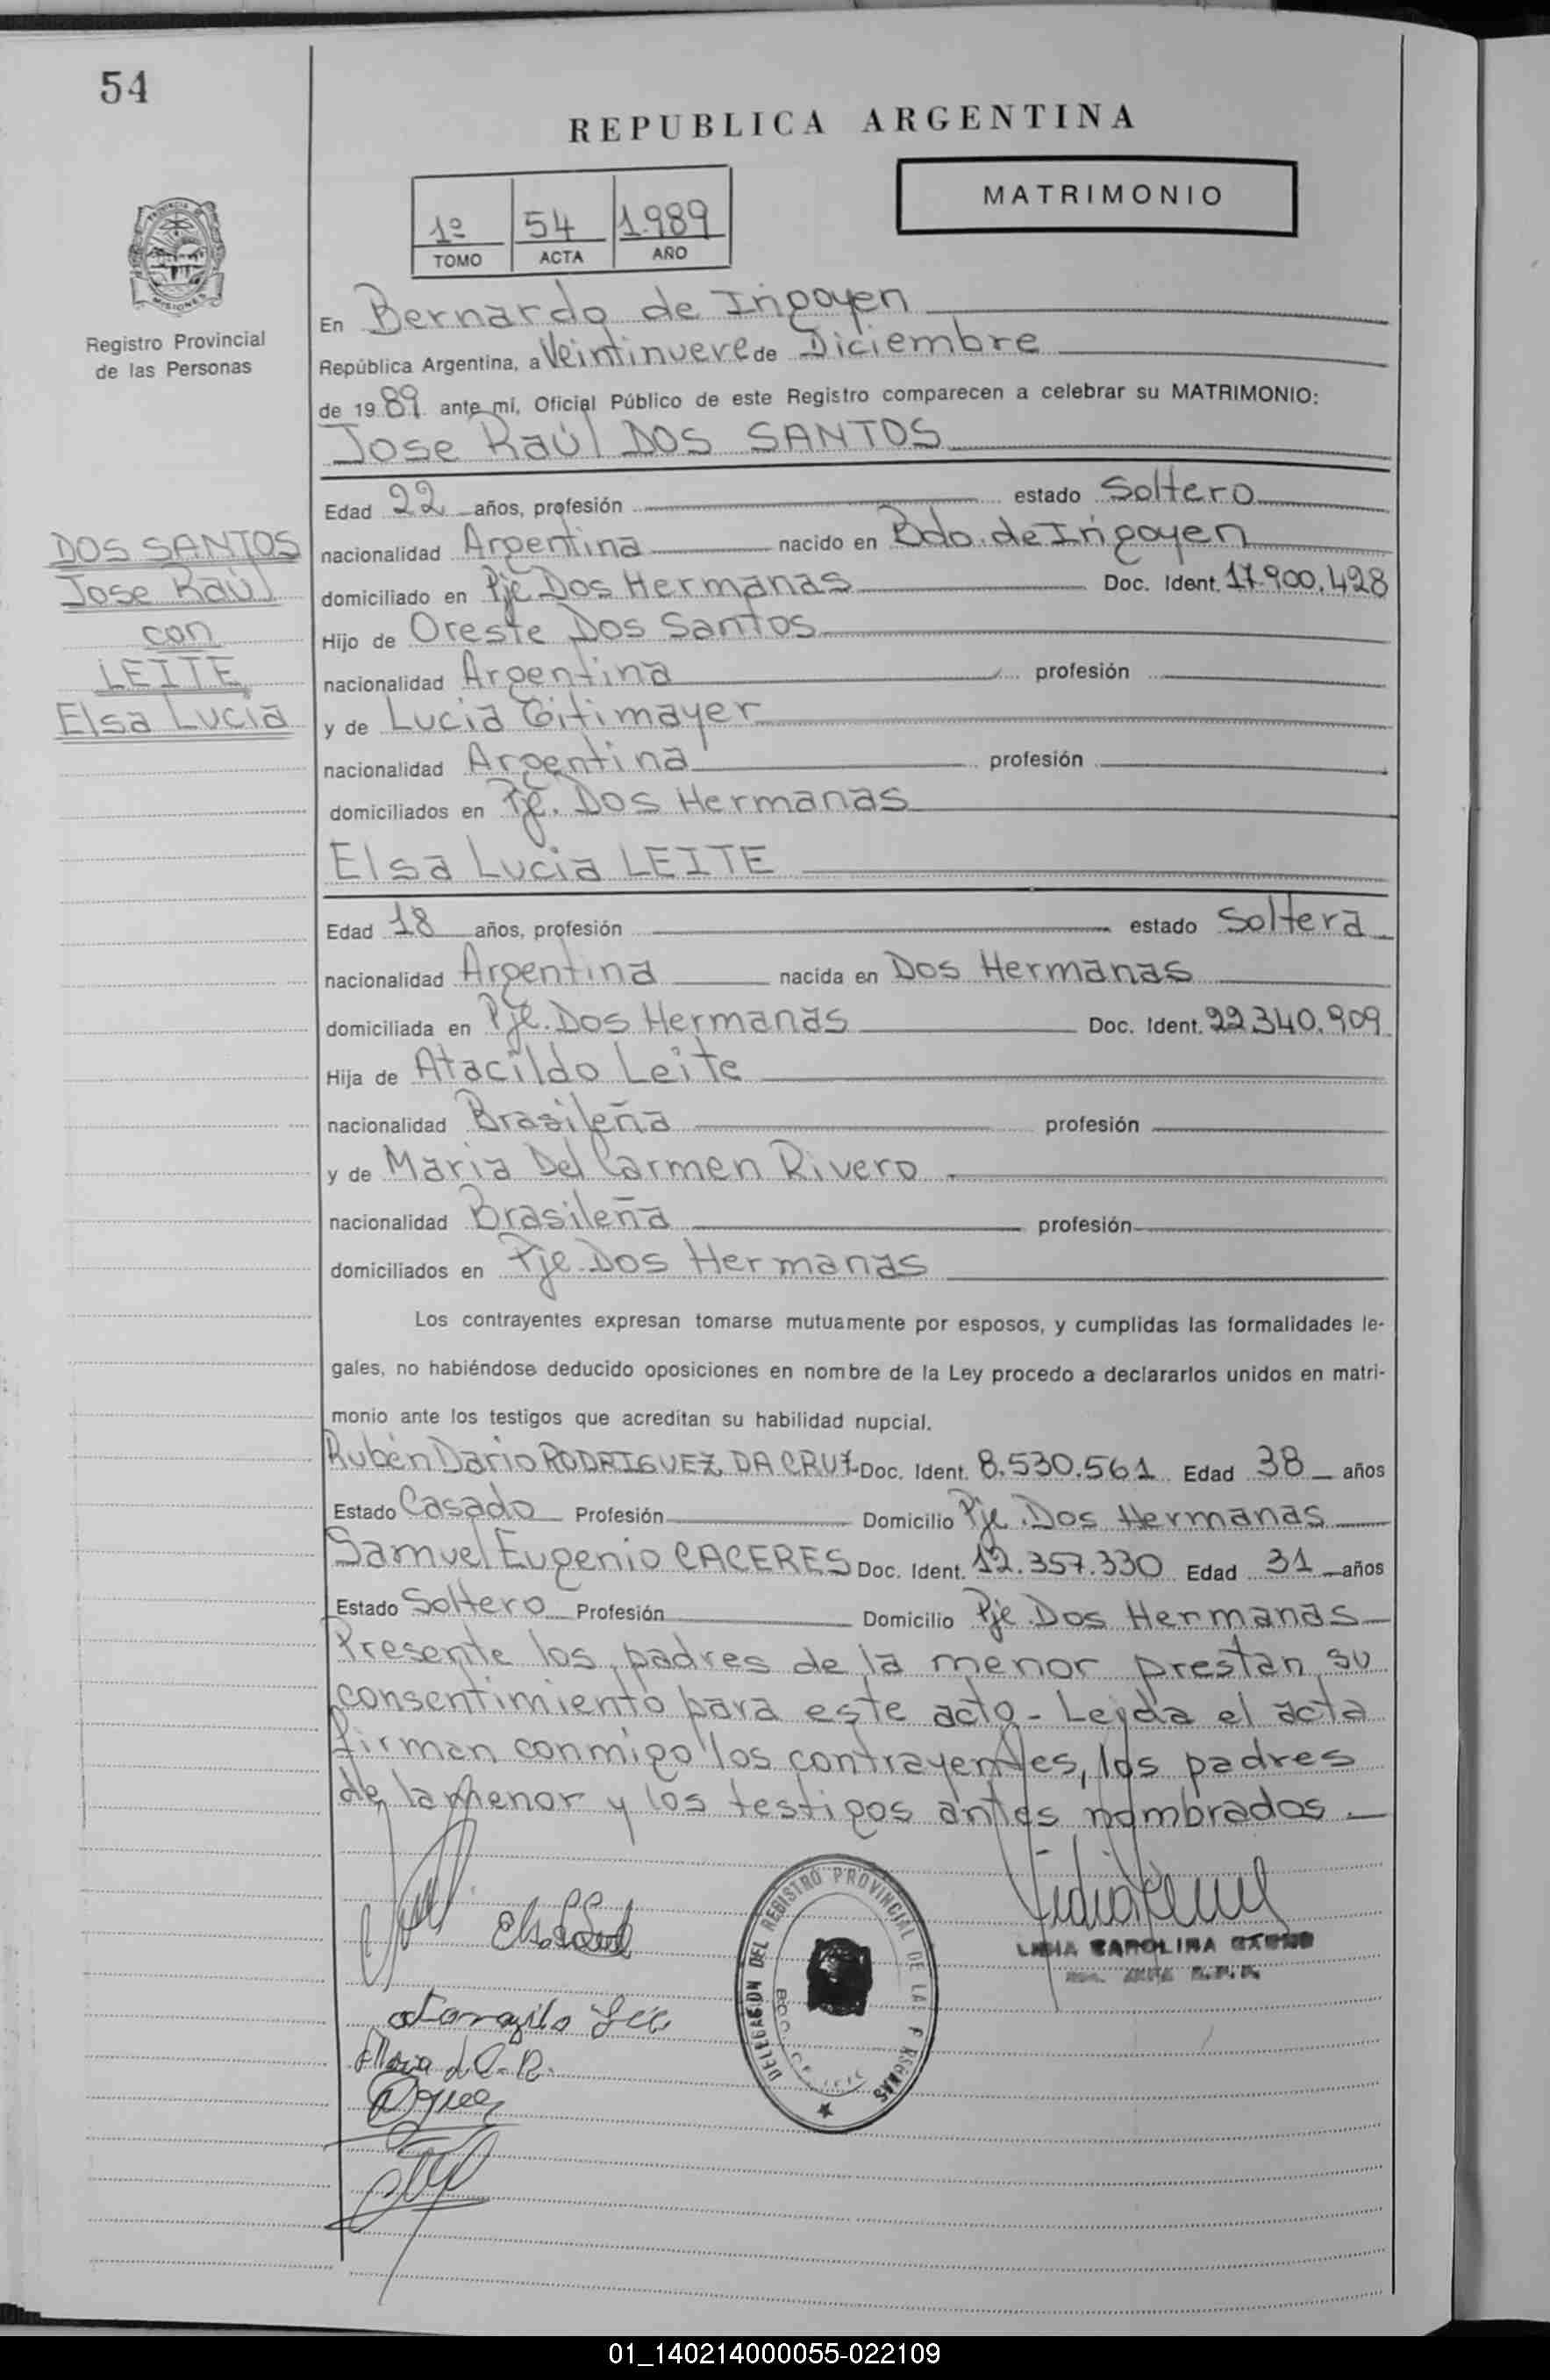 54
REPUBLICA ARGENTINA
MATRIMONIO
1º 54 1.989
TOMO ACTA AÑO
MISIONES
Registro Provincial
de las Personas
En Bernardo de Irigoyen
República Argentina, a Veintinueve de Diciembre
de 1989 ante mí, Oficial Público de este Registro comparecen a celebrar su MATRIMONIO:
Jose Raúl DOS SANTOS
Edad 22 años, profesión estado Soltero
DOS SANTOS
Jose Raúl
con
LEITE
Elsa Lucia
nacionalidad Argentina nacido en Bdo. de Irigoyen
domiciliado en Pje Dos Hermanas Doc. Ident. 17.900.428
Hijo de Oreste Dos Santos
nacionalidad Argentina profesión
y de Lucia
nacionalidad Argentina profesión
domiciliados en Pje. Dos Hermanas
Elsa Lucia LEITE
Edad 18 años, profesión estado Soltera
nacionalidad Argentina nacida en Dos Hermanas
domiciliada en Pje. Dos Hermanas Doc. Ident. 22.340.909
Hija de Atacildo Leite
nacionalidad Brasileña profesión
y de Maria Del Carmen Rivero
nacionalidad Brasileña profesión
domiciliados en Pje. Dos Hermanas
Los contrayentes expresan tomarse mutuamente por esposos, y cumplidas las formalidades le-
gales, no habiéndose deducido oposiciones en nombre de la Ley procedo a declararlos unidos en matri-
monio ante los testigos que acreditan su habilidad nupcial.
Rubén Dario RODRIGUEZ DA CRUZ Doc. Ident. 8.530.561 Edad 38 años
Estado Casado Profesión Domicilio Pje. Dos Hermanas
Samuel Eugenio CACERES Doc. Ident. 12.357.330 Edad 31 años
Estado Soltero Profesión Domicilio Pje. Dos Hermanas
Presente los padres de la menor prestan su
consentimiento para este acto - Leida el acta
firman conmigo los contrayentes, los padres
de la menor y los testigos antes nombrados.
DELEGACION DEL REGISTRO PROVINCIAL DE LA
CAROLINA
Maria d. C. R.
01_140214000055-022109